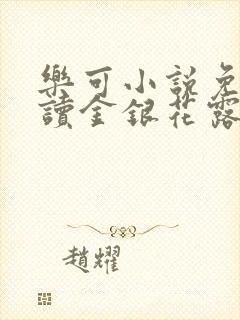 樂可小說免
讀金銀花露
趙耀